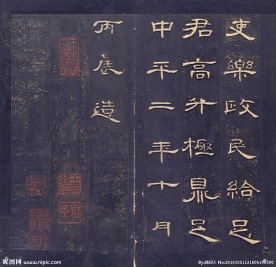 吏樂政民給足
君高升極鼎足
中平二年十月
丙辰造
昵图网 www.nipic.com